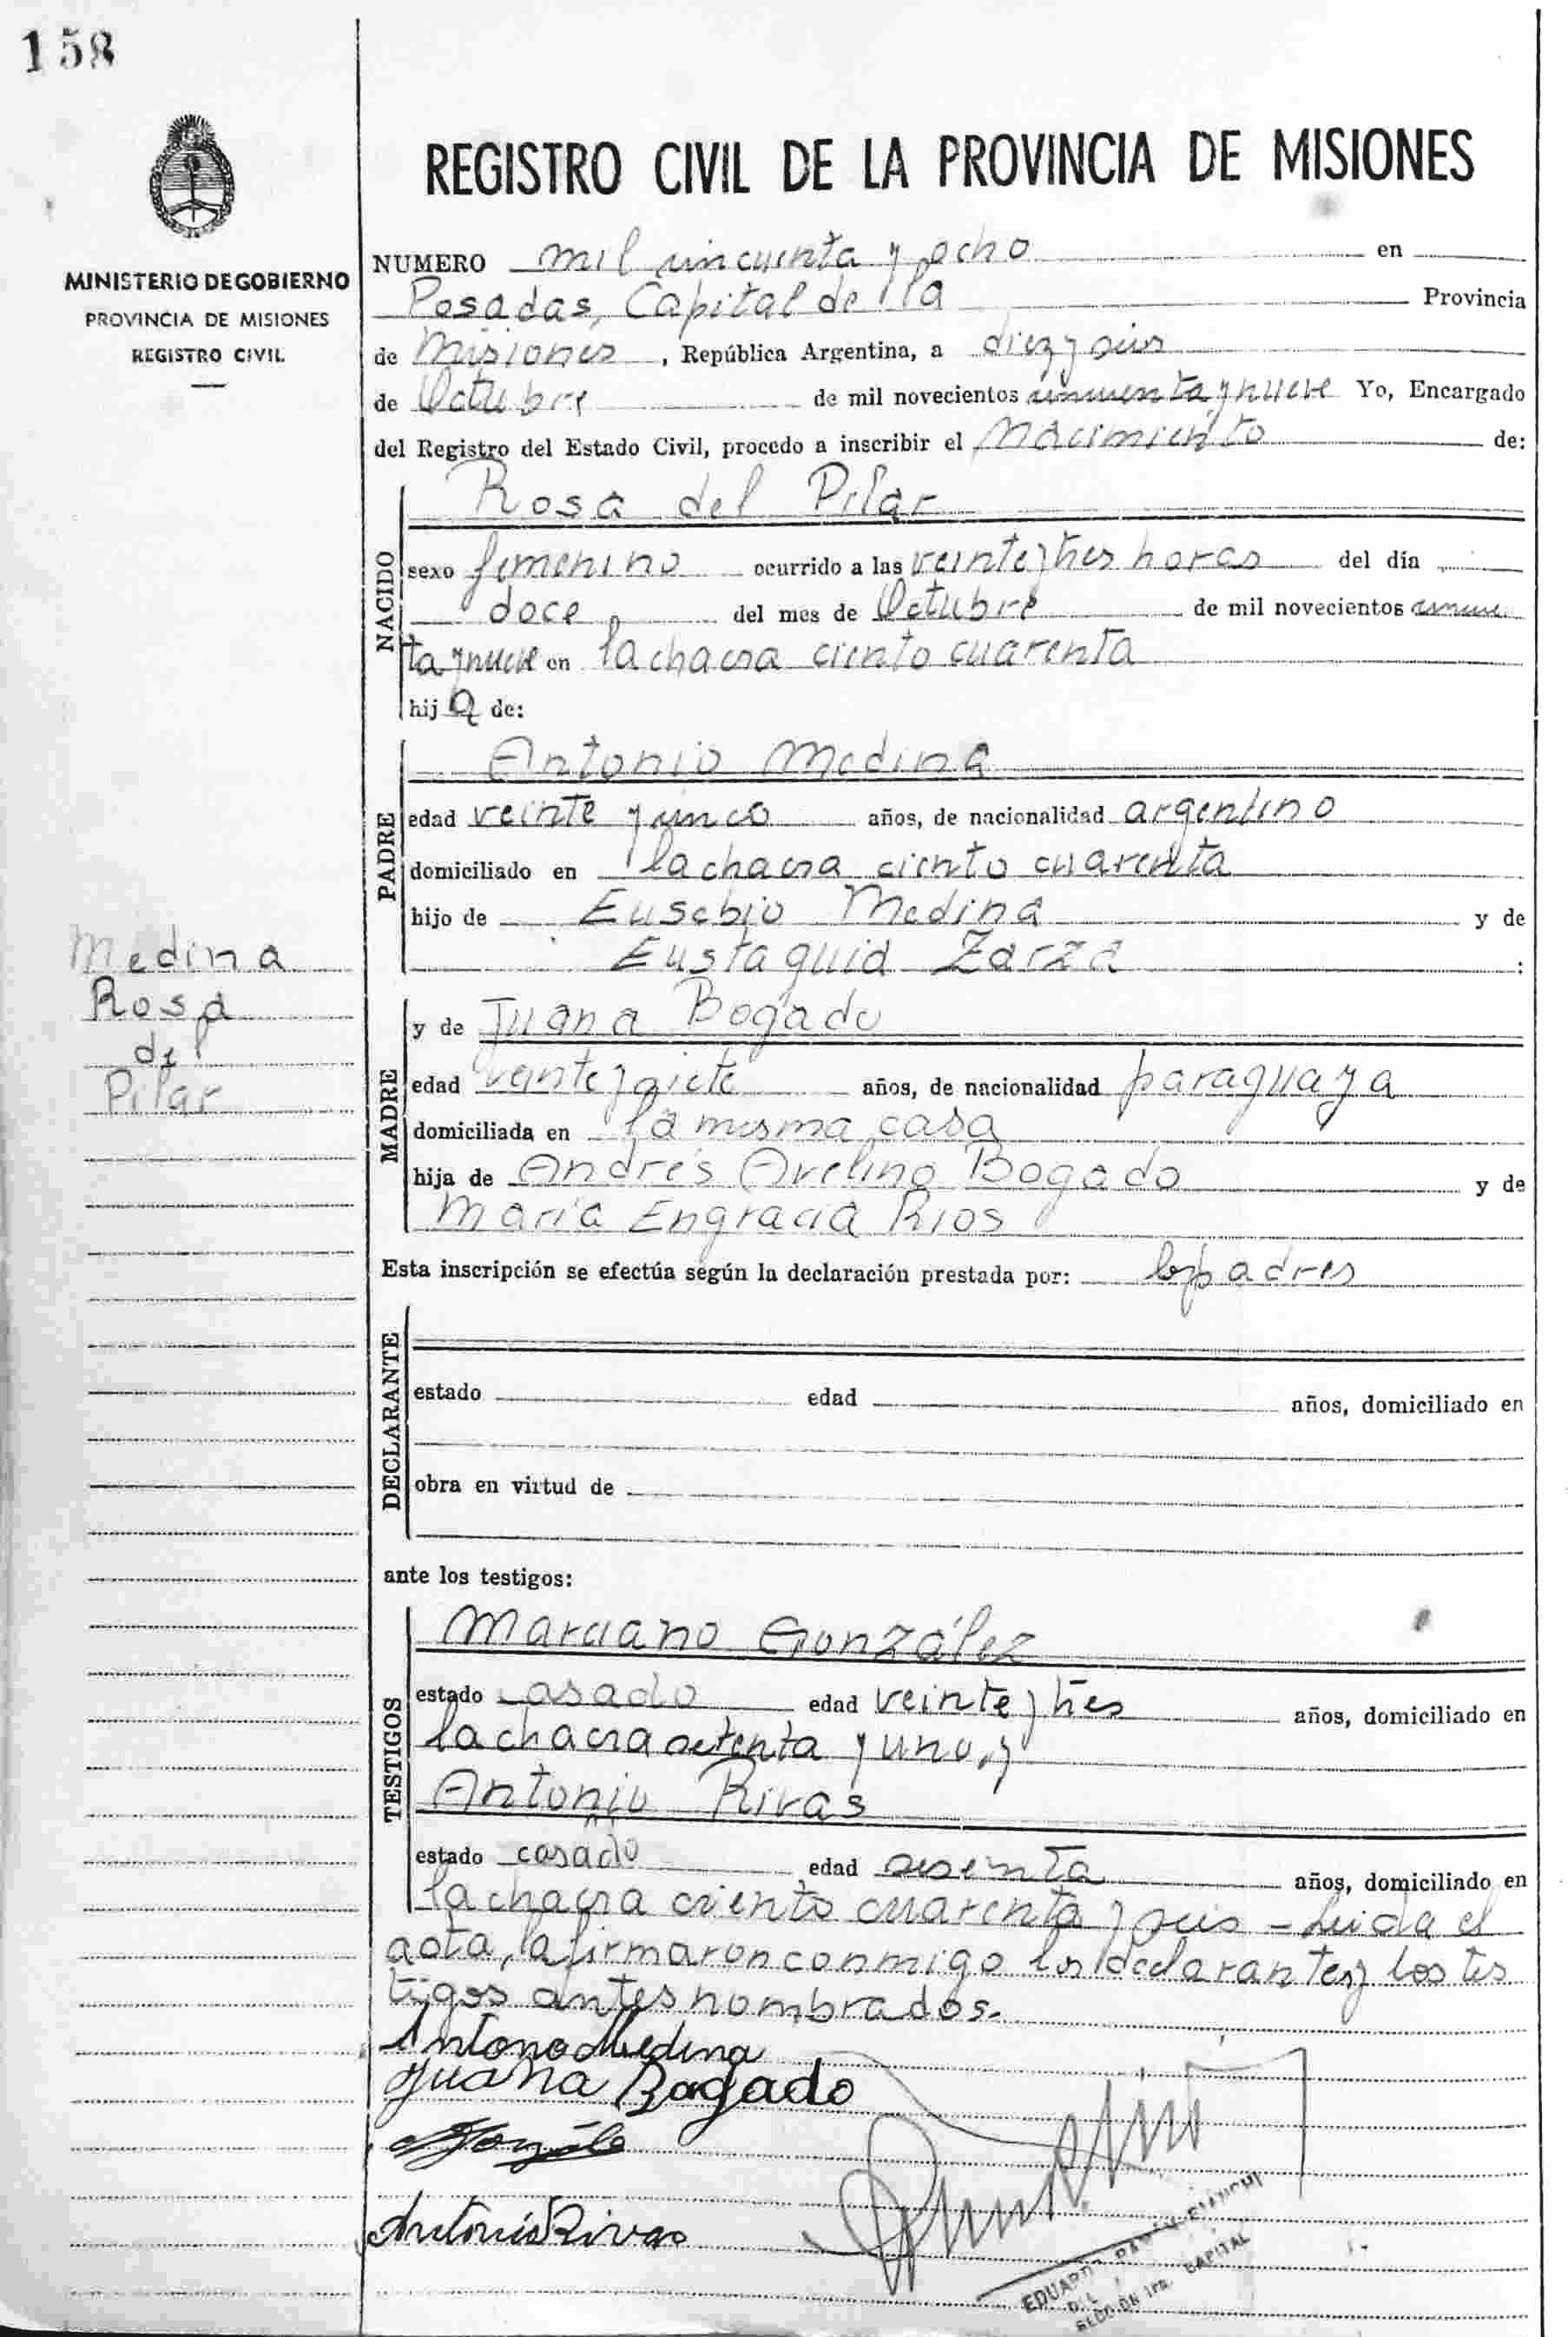 158
MINISTERIO DE GOBIERNO
PROVINCIA DE MISIONES
REGISTRO CIVIL
REGISTRO CIVIL DE LA PROVINCIA DE MISIONES
NUMERO mil cincuenta y ocho en
Posadas, Capital de la Provincia
de Misiones, República Argentina, a diez y seis
de Octubre de mil novecientos cincuenta y nueve Yo, Encargado
del Registro del Estado Civil, procedo a inscribir el Nacimiento de:
NACIDO
Rosa del Pilar
sexo femenino ocurrido a las veinte y tres horas del día
doce del mes de Octubre de mil novecientos cincuen
ta y nueve en la chacra ciento cuarenta
hija de:
PADRE
Antonio Medina
edad veinte y cinco años, de nacionalidad argentino
domiciliado en la chacra ciento cuarenta
hijo de Eusebio Medina y de
Eustaquia Zarza :
Medina
Rosa
del
Pilar
MADRE
y de Juana Bogado
edad veinte y siete años, de nacionalidad paraguaya
domiciliada en la misma casa
hija de Andrés Avelino Bogado y de
María Engracia Rios
Esta inscripción se efectúa según la declaración prestada por: los padres
DECLARANTE
estado edad años, domiciliado en
obra en virtud de
ante los testigos:
TESTIGOS
Marciano González
estado casado edad veinte y tres años, domiciliado en
la chacra setenta y uno, y
Antonio Rivas
estado casado edad sesenta años, domiciliado en
la chacra ciento cuarenta y seis - Leida el
acta, la firmaron conmigo los declarantes y los tes
tigos antes nombrados.
Antono Medina
Juana Bogado
Antonio Rivas
EDUARDO BIANCHI
SECCION 1ra. CAPITAL